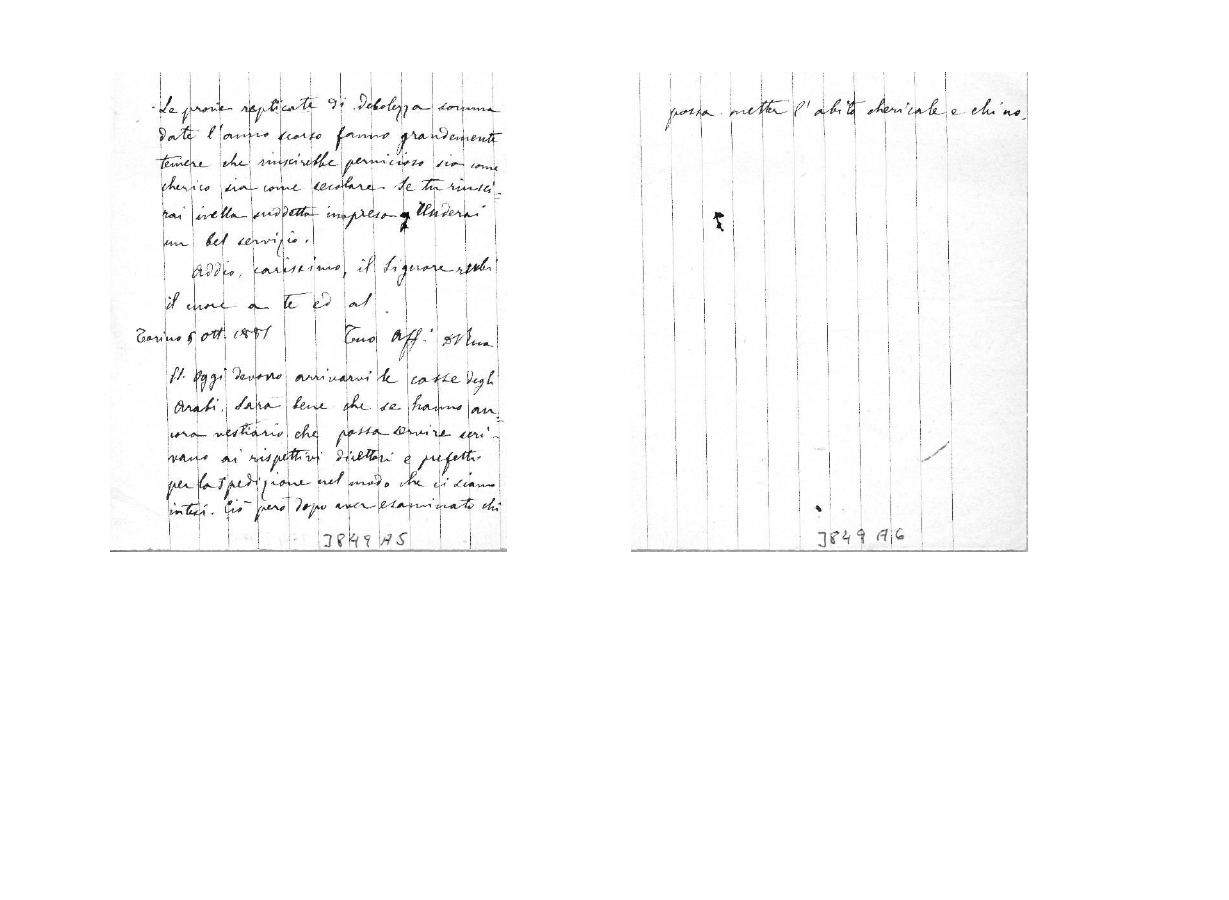 Le prove replicate di debolezza somma
date l'anno scorso fanno grandemente
temere che riuscirebbe pernicioso sia come
cherico sia come secolare. Se tu riusci-
rai nella suddetta impresa renderai
un bel servizio.
Addio, carissimo, il Signore
il cuore a te ed al
Torino 5 ott. 1881 Tuo Aff. D Rua
PS. Oggi devono arrivarvi le casse degli
Arabi. Sarà bene che se hanno an-
cora vestiario che possa servire scri-
vano ai rispettivi direttori e prefetti
per la spedizione nel modo che ci siamo
intesi. Ciò però dopo aver esaminato chi
J849 A5
possa metter l'abito chericale e chi no.
J849 A6